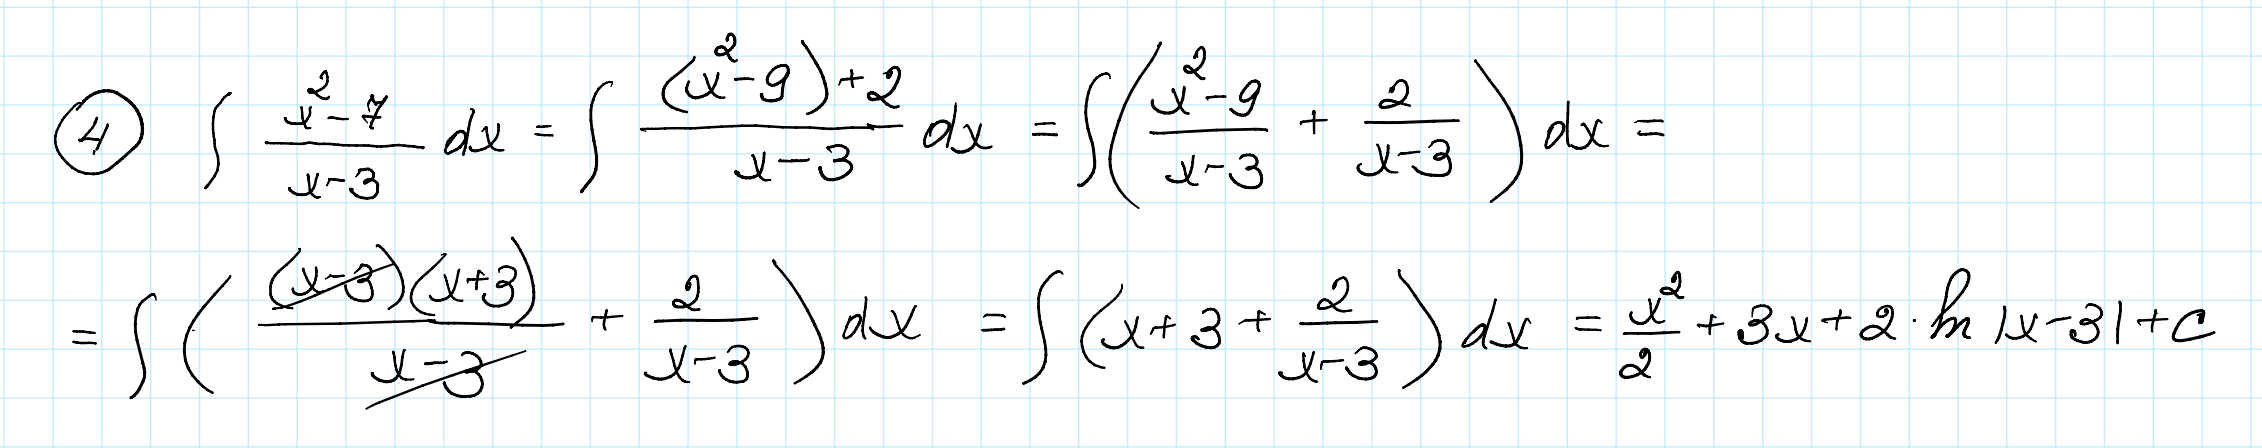 ④ ∫ (x²-7)/(x-3) dx = ∫ ((x²-9)+2)/(x-3) dx = ∫((x²-9)/(x-3) + 2/(x-3)) dx =
= ∫ (((x-3)(x+3))/(x-3) + 2/(x-3)) dx = ∫ (x+3+2/(x-3)) dx = x²/2 + 3x + 2·ln|x-3| + C